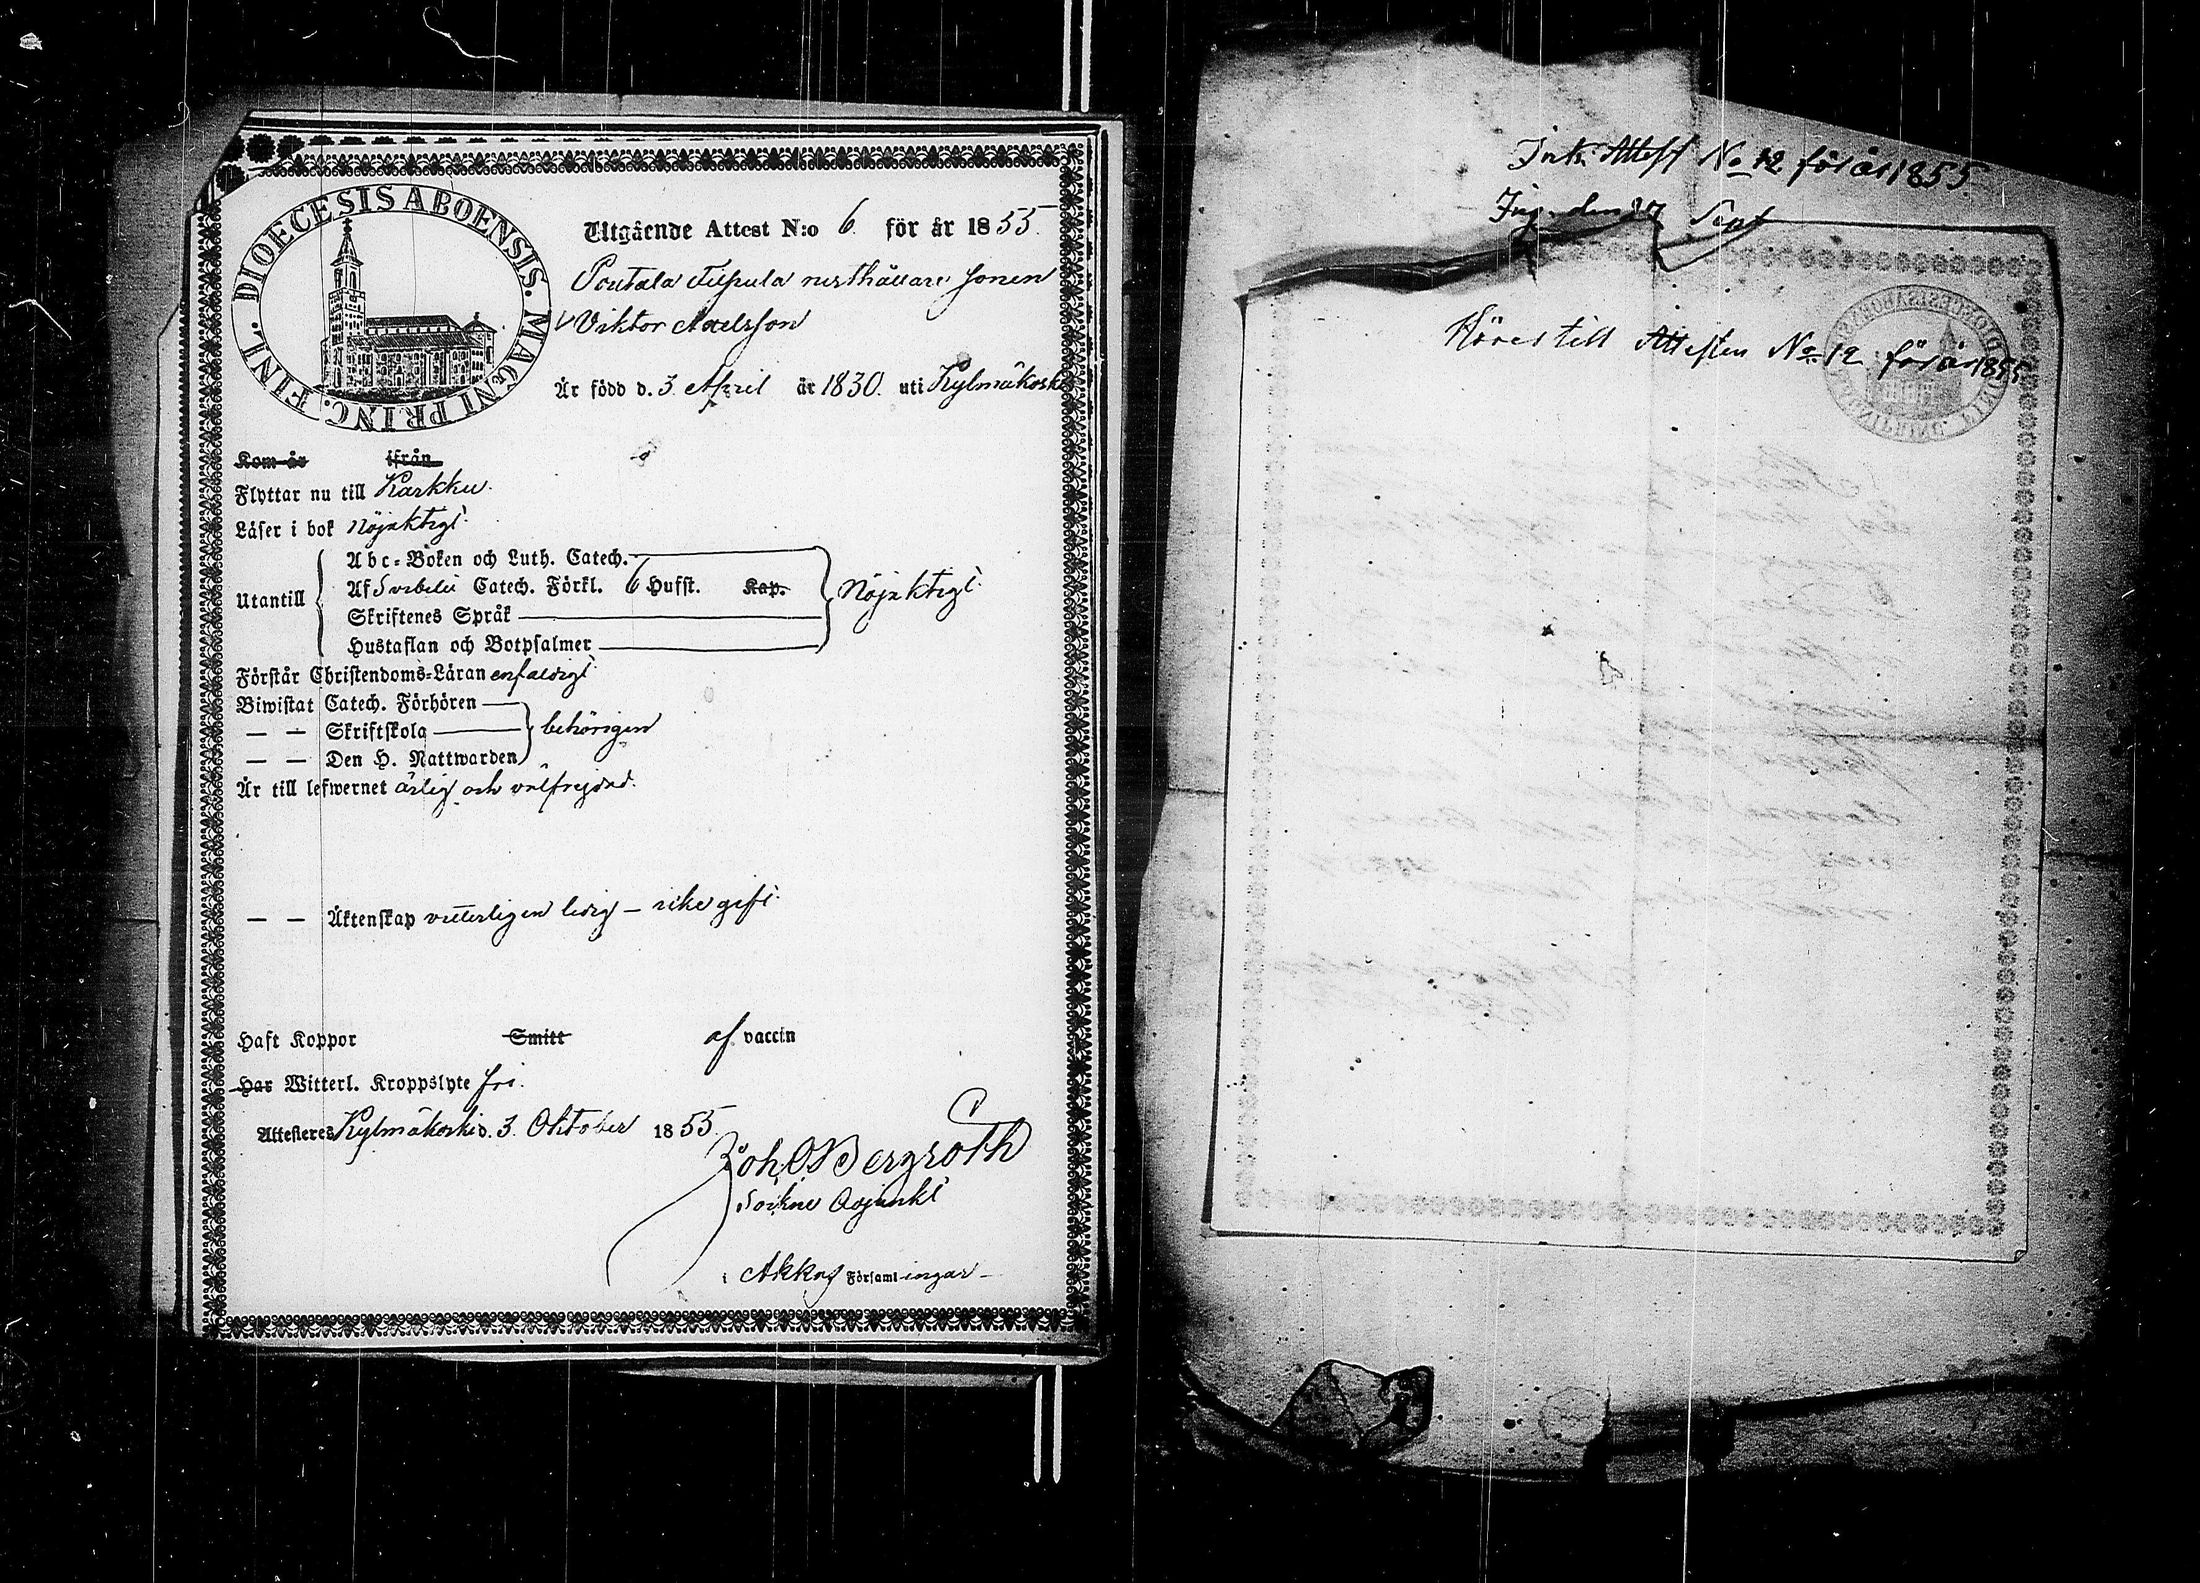 DIOECESIS ABOENSIS. MAGNI PRINC. FINL.
Utgående Attest N:o 6. för år 1855.
Poutala Tiipula rusthållare sonen
Viktor Axelsson
Är född d. 3 April år 1830. uti Kylmäkoski
Kom år ifrån
Flyttar nu till Karkku.
Läser i bok nöjaktigt.
Utantill
Abc-Boken och Luth. Catech.
Af Svebelii Catech. Förkl. 6 Hufst. Kap.
Skriftenes Språk
Hustaflan och Botpsalmer
nöjaktigt.
Förstår Christendoms-Läran enfaldigt
Biwistat Catech. Förhören
— — Skriftskola
— — Den H. Nattwarden
behörigen
Är till lefwernet ärlig och välfrejdad.
— — Äktenskap vitterligen ledig – icke gift.
Haft Koppor Smitt af vaccin
Har Witterl. Kroppslyte fri.
Attesteres Kylmäkoski d. 3. Oktober 1855.
Joh. O Bergroth
Sockne Adjunkt
i Akkas Församlingar
Ink. Attest No 12 för år 1855
Ing. den 27 Sept
Höres till Attesten No 12 för år 1855